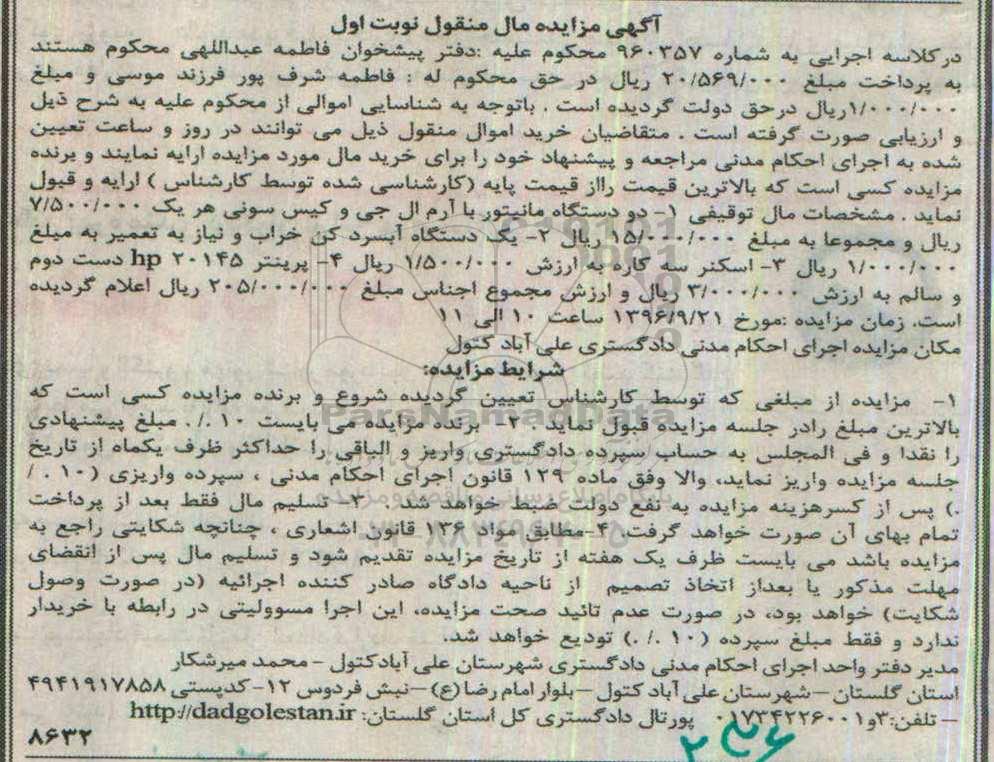 آگهی مزایده مال منقول نوبت اول
درکلاسه اجرایی به شماره ۹۶۰۳۵۷ محکوم علیه :دفتر پیشخوان فاطمه عبداللهی محکوم هستند
به پرداخت مبلغ ۲۰/۵۶۹/۰۰۰ ریال در حق محکوم له : فاطمه شرف پور فرزند موسی و مبلغ
۱/۰۰۰/۰۰۰ریال درحق دولت گردیده است . باتوجه به شناسایی اموالی از محکوم علیه به شرح ذیل
و ارزیابی صورت گرفته است . متقاضیان خرید اموال منقول ذیل می توانند در روز و ساعت تعیین
شده به اجرای احکام مدنی مراجعه و پیشنهاد خود را برای خرید مال مورد مزایده ارایه نمایند و برنده
مزایده کسی است که بالاترین قیمت رااز قیمت پایه (کارشناسی شده توسط کارشناس ) ارایه و قبول
نماید . مشخصات مال توقیفی ۱- دو دستگاه مانیتور با آرم ال جی و کیس سونی هر یک ۷/۵۰۰/۰۰۰
ریال و مجموعا به مبلغ ۱۵/۰۰۰/۰۰۰ ریال ۲- یک دستگاه آبسرد کن خراب و نیاز به تعمیر به مبلغ
۱/۰۰۰/۰۰۰ ریال ۳- اسکنر سه کاره به ارزش ۱/۵۰۰/۰۰۰ ریال ۴- پرینتر hp ۲۰۱۴۵ دست دوم
و سالم به ارزش ۳/۰۰۰/۰۰۰ ریال و ارزش مجموع اجناس مبلغ ۲۰۵/۰۰۰/۰۰۰ ریال اعلام گردیده
است. زمان مزایده :مورخ ۱۳۹۶/۹/۲۱ ساعت ۱۰ الی ۱۱
مکان مزایده اجرای احکام مدنی دادگستری علی آباد کتول
شرایط مزایده:
۱- مزایده از مبلغی که توسط کارشناس تعیین گردیده شروع و برنده مزایده کسی است که
بالاترین مبلغ رادر جلسه مزایده قبول نماید . ۲- برنده مزایده می بایست ۱۰ ./. مبلغ پیشنهادی
را نقدا و فی المجلس به حساب سپرده دادگستری واریز و الباقی را حداکثر ظرف یکماه از تاریخ
جلسه مزایده واریز نماید، والا وفق ماده ۱۲۹ قانون اجرای احکام مدنی ، سپرده واریزی (۱۰ . /
.) پس از کسرهزینه مزایده به نفع دولت ضبط خواهد شد . ۳- تسلیم مال فقط بعد از پرداخت
تمام بهای آن صورت خواهد گرفت. ۴-مطابق مواد ۱۳۶ قانون اشعاری ، چنانچه شکایتی راجع به
مزایده باشد می بایست ظرف یک هفته از تاریخ مزایده تقدیم شود و تسلیم مال پس از انقضای
مهلت مذکور یا بعداز اتخاذ تصمیم از ناحیه دادگاه صادر کننده اجرائیه (در صورت وصول
شکایت) خواهد بود، در صورت عدم تائید صحت مزایده، این اجرا مسوولیتی در رابطه با خریدار
ندارد و فقط مبلغ سپرده (۱۰ ./ .) تودیع خواهد شد.
مدیر دفتر واحد اجرای احکام مدنی دادگستری شهرستان علی آبادکتول - محمد میرشکار
استان گلستان –شهرستان علی آباد کتول –بلوار امام رضا (ع) –نبش فردوس ۱۲- کدپستی ۴۹۴۱۹۱۷۸۵۸
– تلفن:۳و۰۱۷۳۴۲۲۶۰۰۱ پورتال دادگستری کل استان گلستان: http://dadgolestan.ir
۸۶۳۲
ParsNamadData